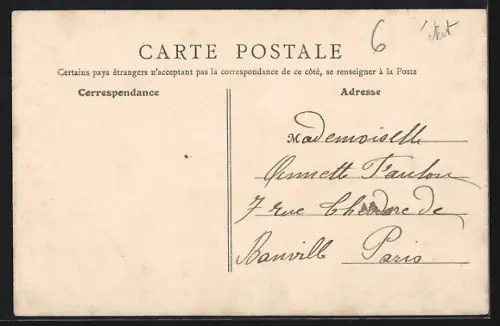 6
CARTE POSTALE
Certains pays étrangers n'acceptant pas la correspondance de ce côté, se renseigner à la Poste
Correspondance
Adresse
Mademoiselle
7 rue Théodore de
Banvill Paris